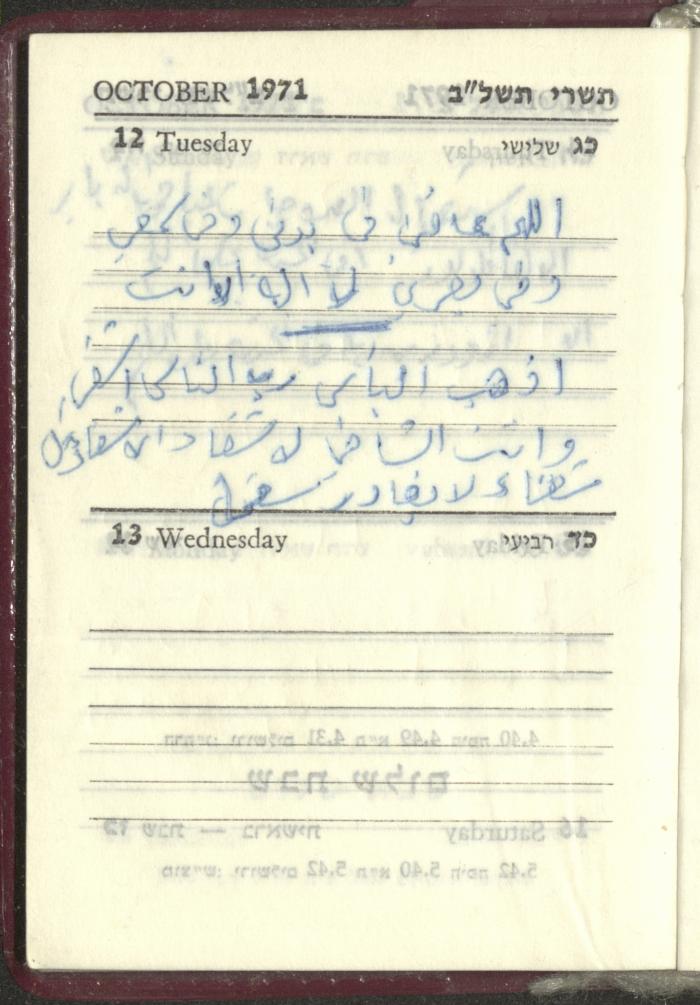 OCTOBER 1971 תשרי תשל"ב
12 Tuesday כג שלישי
اللهم عافني في بدني وفي سمعي
وفي بصري لا اله الا انت
اذهب الباس رب الناس اشف
وانت الشافي لا شفاء الا شفاؤك
شفاء لا يغادر سقما
13 Wednesday כד רביעי